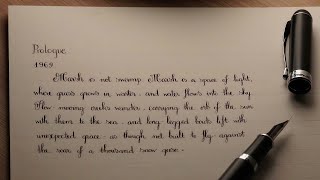 Prologue
1969
Marsh is not swamp. Marsh is a space of light,
where grass grows in water, and water flows into the sky.
Slow-moving creeks wander, carrying the orb of the sun
with them to the sea, and long-legged birds lift with
unexpected grace - as though not built to fly - against
the roar of a thousand snow geese.